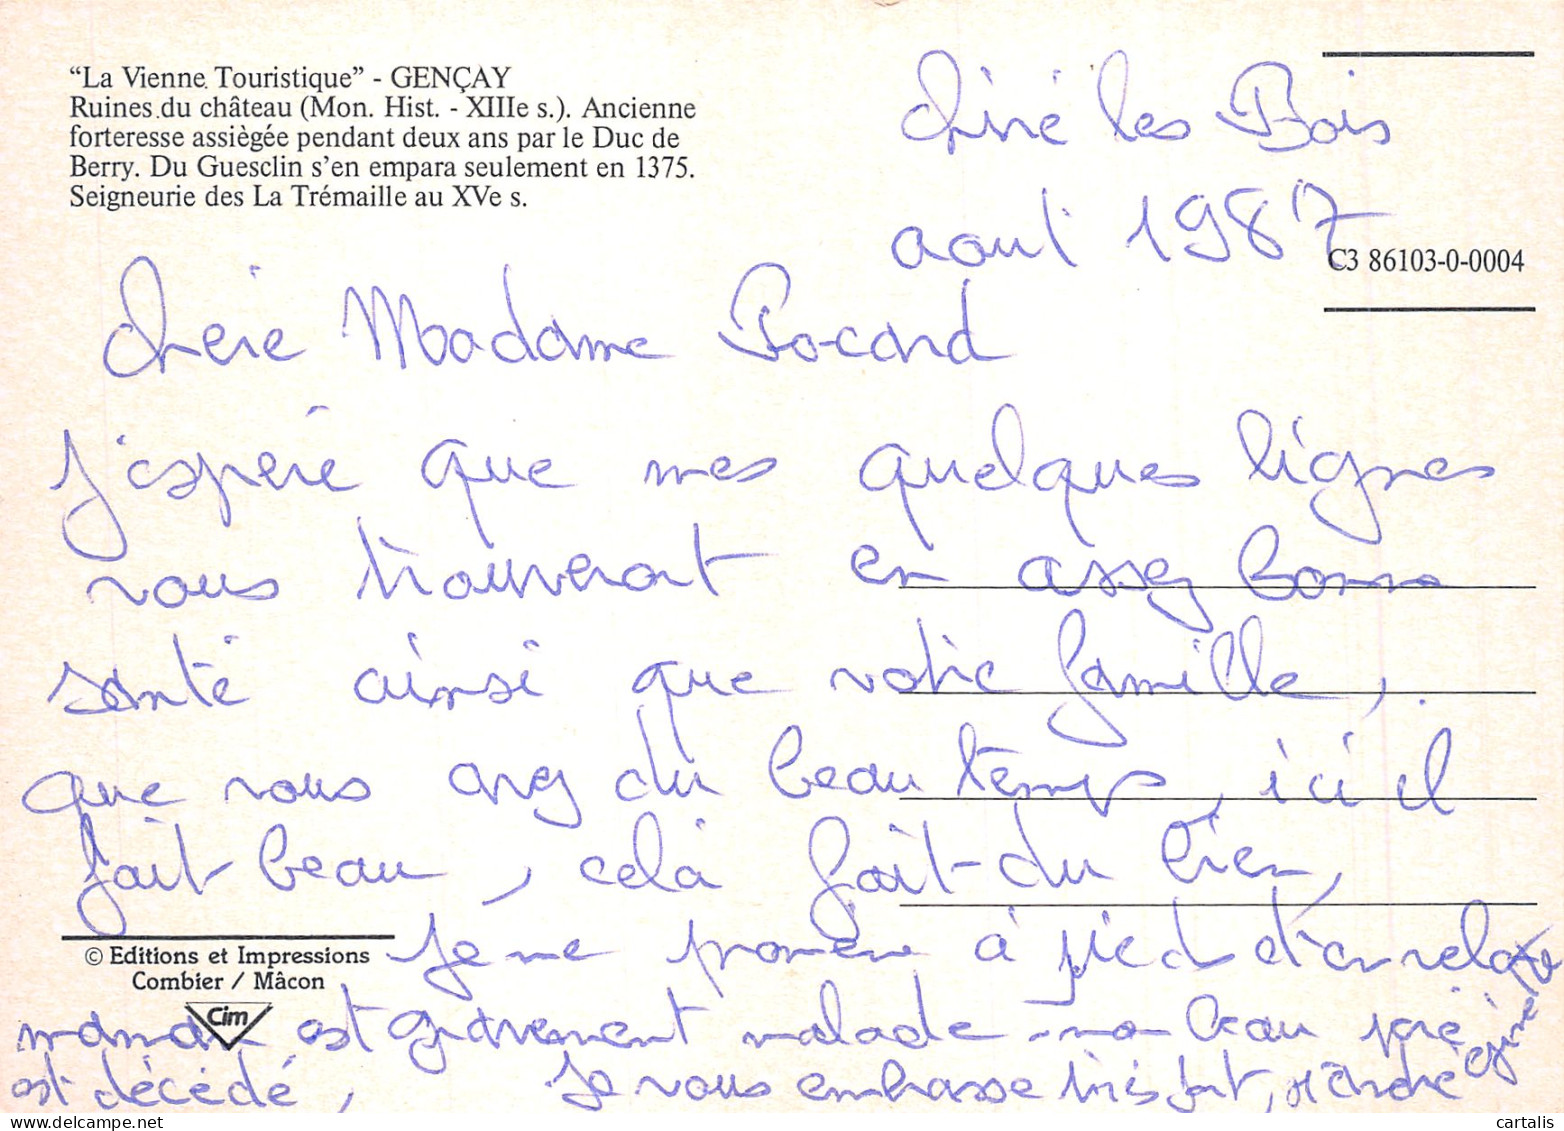 “La Vienne Touristique” - GENÇAY
Ruines du château (Mon. Hist. - XIIIe s.). Ancienne
forteresse assiègée pendant deux ans par le Duc de
Berry. Du Guesclin s’en empara seulement en 1375.
Seigneurie des La Trémaille au XVe s.
Chiré les Bois
aout 1987
C3 86103-0-0004
chère Madame Pocard
J'espère que mes quelques lignes
vous trouveront en assez bonne
santé ainsi que votre famille,
que vous avez du beau temps, ici il
fait beau, celà fait du bien,
Je me promène à pied
maman est gravement malade mon beau père
est décédé, Je vous embrasse très fort,
© Editions et Impressions
Combier / Mâcon
Cim
cartalis